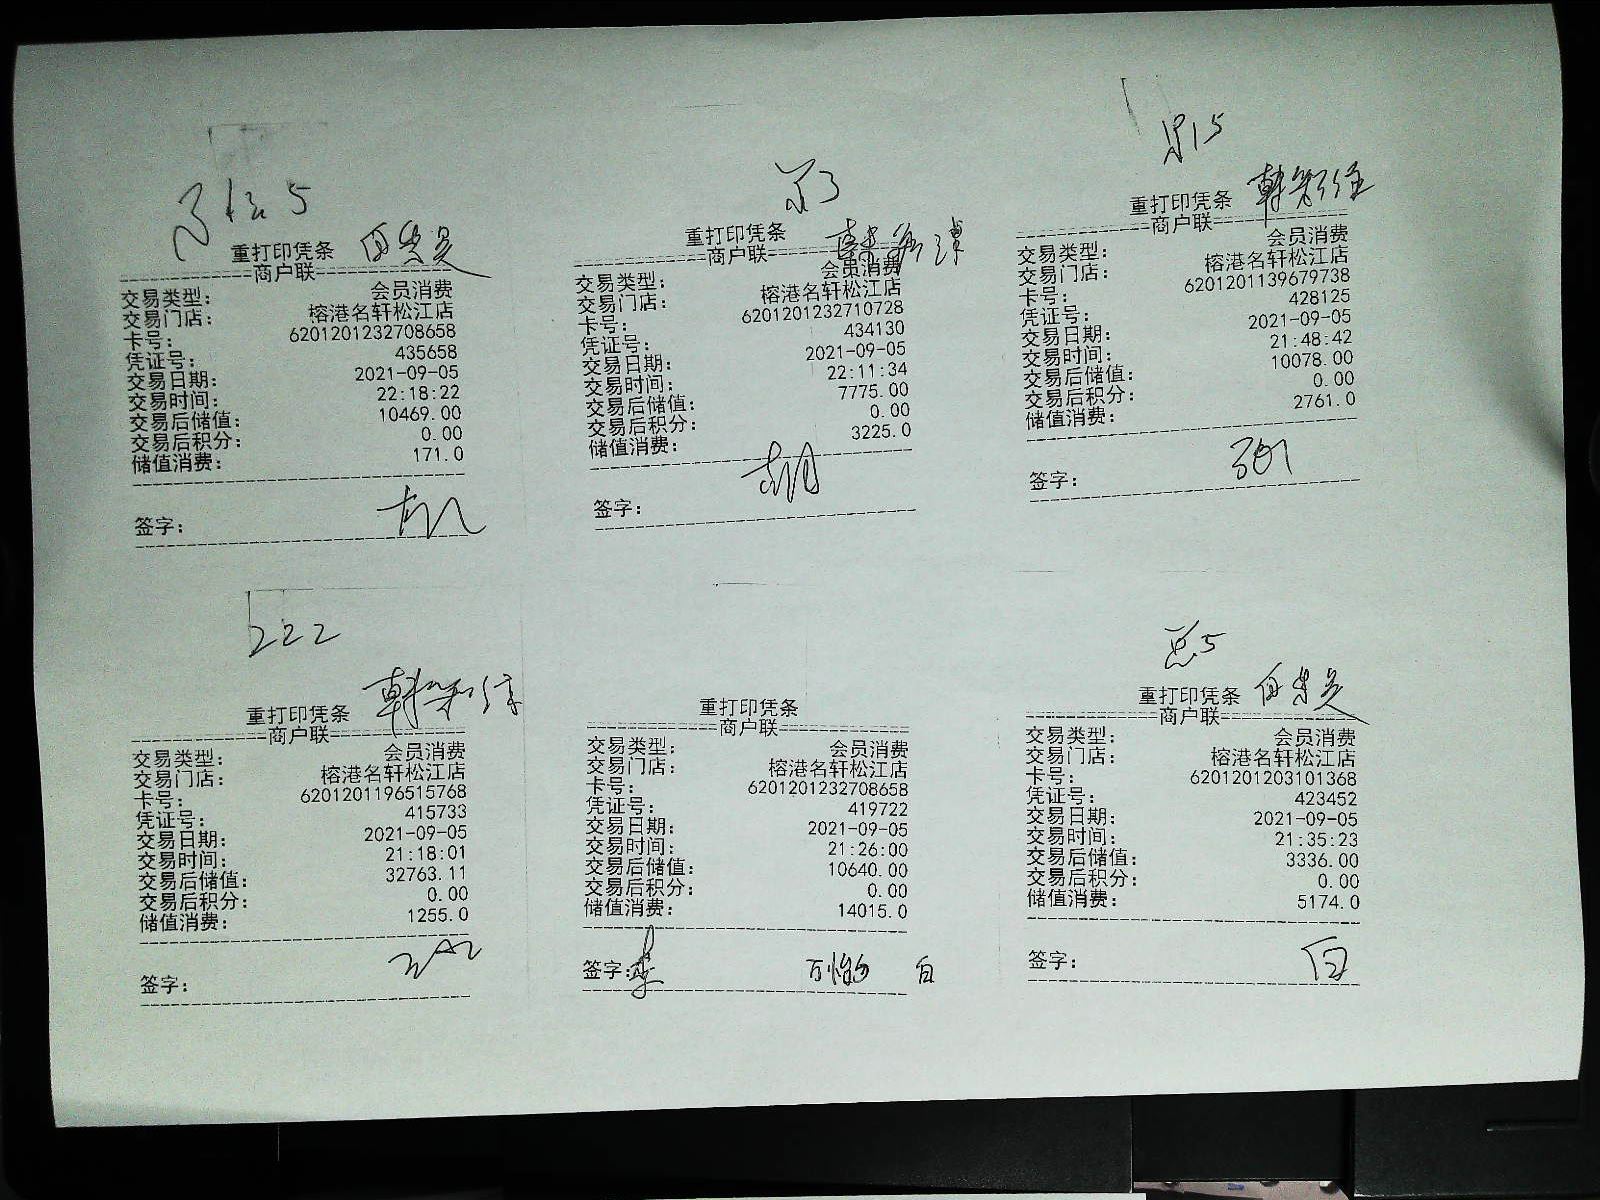 重打印凭条
商户联
交易类型： 会员消费
交易门店： 榕港名轩松江店
卡号： 6201201232708658
凭证号： 435658
交易日期： 2021-09-05
交易时间： 22:18:22
交易后储值： 10469.00
交易后积分： 0.00
储值消费： 171.0
签字：
重打印凭条
商户联
交易类型： 会员消费
交易门店： 榕港名轩松江店
卡号： 6201201232710728
凭证号： 434130
交易日期： 2021-09-05
交易时间： 22:11:34
交易后储值： 7775.00
交易后积分： 0.00
储值消费： 3225.0
签字：
重打印凭条
商户联
交易类型： 会员消费
交易门店： 榕港名轩松江店
卡号： 6201201139679738
凭证号： 428125
交易日期： 2021-09-05
交易时间： 21:48:42
交易后储值： 10078.00
交易后积分： 0.00
储值消费： 2761.0
签字：
222
重打印凭条
商户联
交易类型： 会员消费
交易门店： 榕港名轩松江店
卡号： 6201201196515768
凭证号： 415733
交易日期： 2021-09-05
交易时间： 21:18:01
交易后储值： 32763.11
交易后积分： 0.00
储值消费： 1255.0
签字：
重打印凭条
商户联
交易类型： 会员消费
交易门店： 榕港名轩松江店
卡号： 6201201232708658
凭证号： 419722
交易日期： 2021-09-05
交易时间： 21:26:00
交易后储值： 10640.00
交易后积分： 0.00
储值消费： 14015.0
签字： 白
重打印凭条
商户联
交易类型： 会员消费
交易门店： 榕港名轩松江店
卡号： 6201201203101368
凭证号： 423452
交易日期： 2021-09-05
交易时间： 21:35:23
交易后储值： 3336.00
交易后积分： 0.00
储值消费： 5174.0
签字： 白